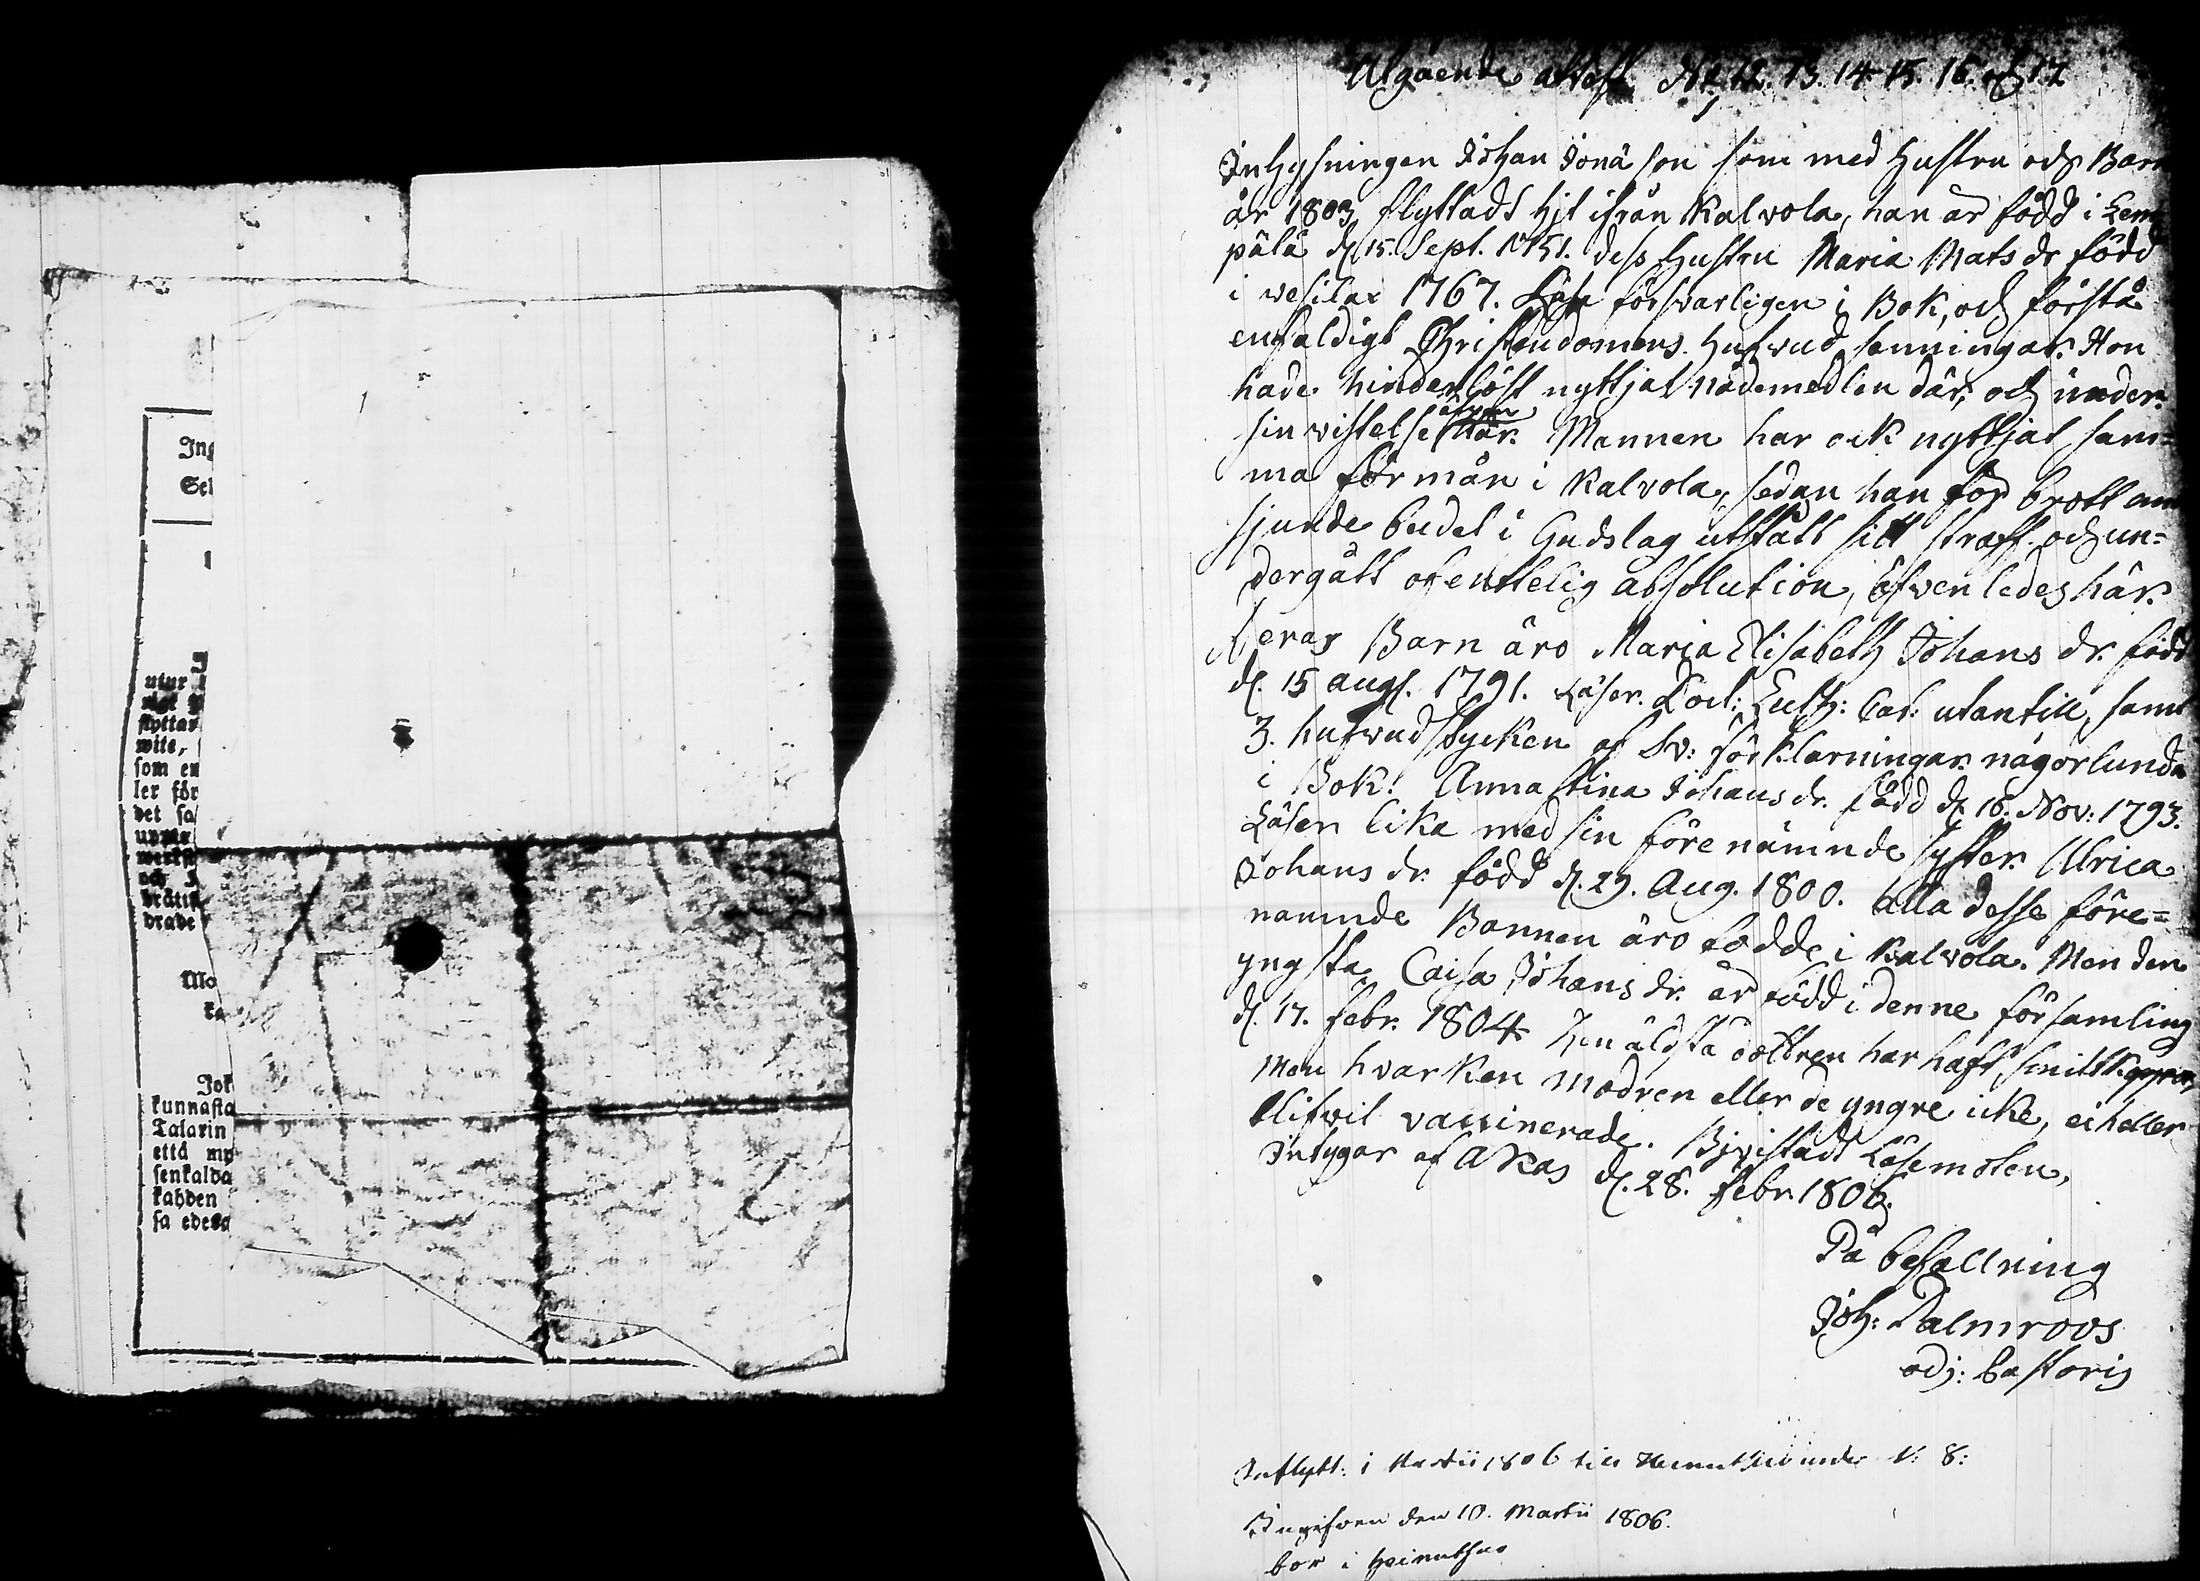 Ing
Sel
utur
flyttas
wite,
som en
ler för
det sa
och
drade
Mo
Jok
kunnasta
Talarin
että my
senkalda
kahden
sa edesä
Utgående attest N:o 12. 13. 14. 15. 16. och 17
Inhysningen Johan Jonä son som med hustru och Barn
år 1803 flyttadt hit ifrån Kalvola, han är född i Lem
pälä d. 15. Sept. 1751. dess hustru Maria Mats dr född
i vesilax 1767. Läsa försvarligen i Bok, och förstå
enfaldigt Christendomens hufvud sanningar. Hon
hade hinderlöst nyttjat nådemedlen där, och under
äfven
sin vistelse här. Mannen har ock nyttjat sam=
ma förmån i Kalvola, sedan han för brott em
sjunde budet i Guds lag utstått sitt straff och un=
dergått ofenttelig absolution, äfvenledes här.
Deras Barn äro Maria Elisabeth Johans dr. född
d. 15 aug. 1791. Läser Doct: Luth: Cat: utantill, samt
3. hufvudstycken af Sv: förklarningar någorlunda
i Bok. Anna Stina Johans dr. född d. 16. Nov: 1793.
Läser lika med sin förenämnde syster. Ulrica
Johans dr. född d. 29. Aug. 1800. alla desse före=
nämnde Barnen äro födde i Kalvola. Men den
yngsta Caisa Johans dr. är född i denne församling
d. 17. febr. 1804. Den äldsta dottren har haft smittkoppor,
Men hvarken modren eller de yngre icke, ei heller
blifvit vaccinerade. Bivistadt Läsemöten,
Intygar af Akas d. 28. febr 1806.
På befallning
Joh: Palmroos
adj: Pastoris
Inflytt: i Martii 1806 till under N: 8:
Ingifven den 10. Martii 1806.
bor i